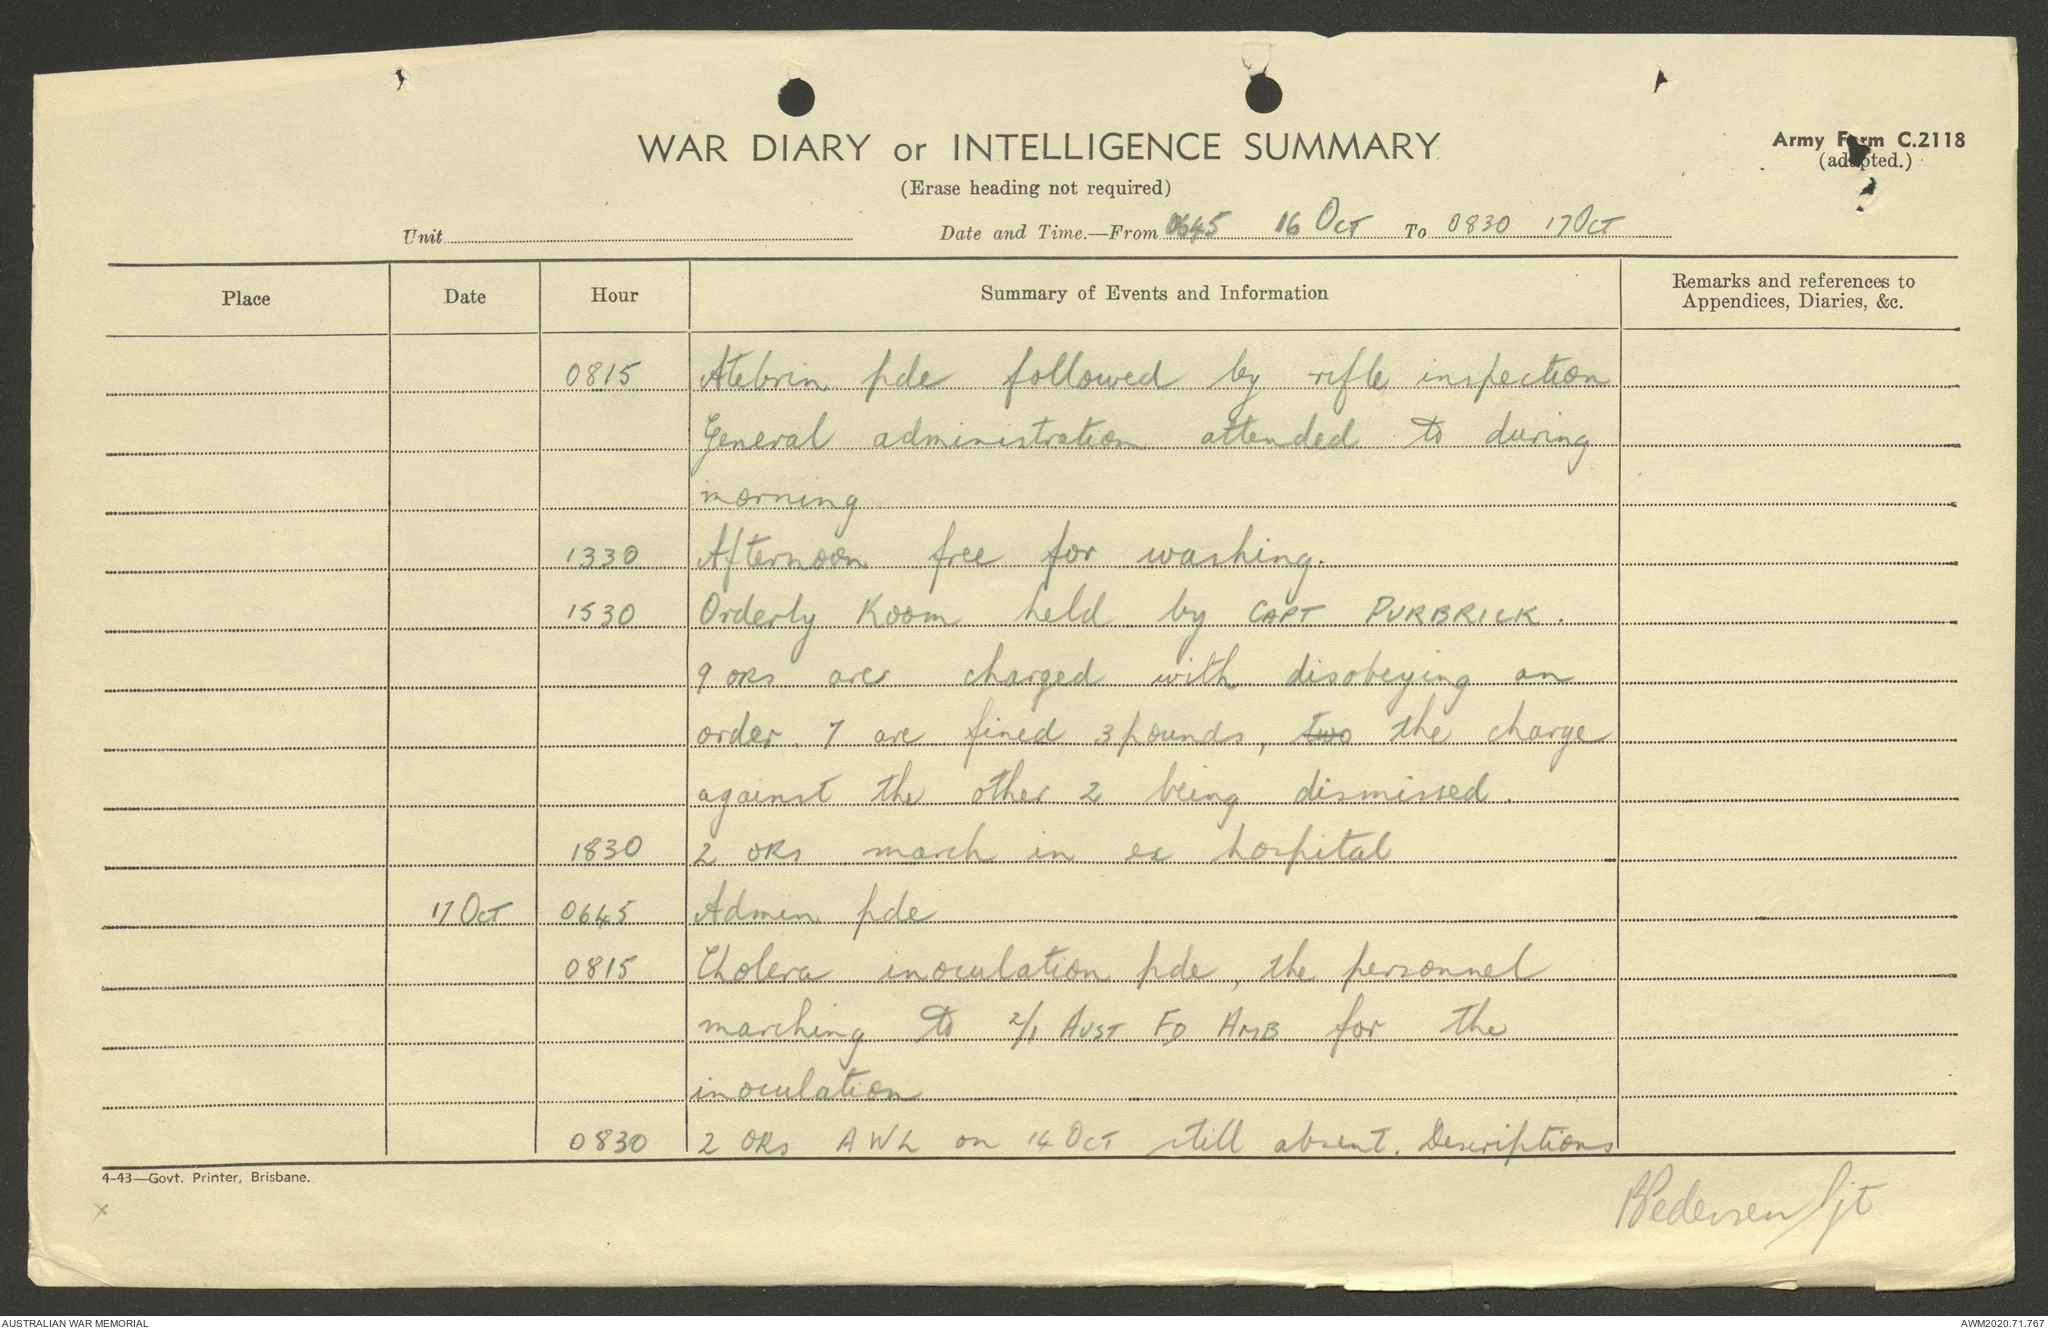 WAR DIARY or INTELLIGENCE SUMMARY
Army Form C.2118
(adapted.)
(Erase heading not required)
Unit Date and Time.—From 0645 16 Oct To 0830 17 Oct
Place Date Hour Summary of Events and Information Remarks and references to
Appendices, Diaries, &c.
0815 Atebrin pde followed by rifle inspection
General administration attended to during
morning
1330 Afternoon free for washing.
1530 Orderly Room held by CAPT PURBRICK.
9 ORs are charged with disobeying an
order. 7 are fined 3 pounds, two the charge
against the other 2 being dismissed.
1830 2 ORs march in ex hospital
17 Oct 0645 Admin pde
0815 Cholera inoculation pde, the personnel
marching to 2/1 AUST FD AMB for the
inoculation
0830 2 ORs AWL on 14 Oct still absent. Descriptions
4-43—Govt. Printer, Brisbane.
x
BPedersen Sjt
AUSTRALIAN WAR MEMORIAL
AWM2020.71.767